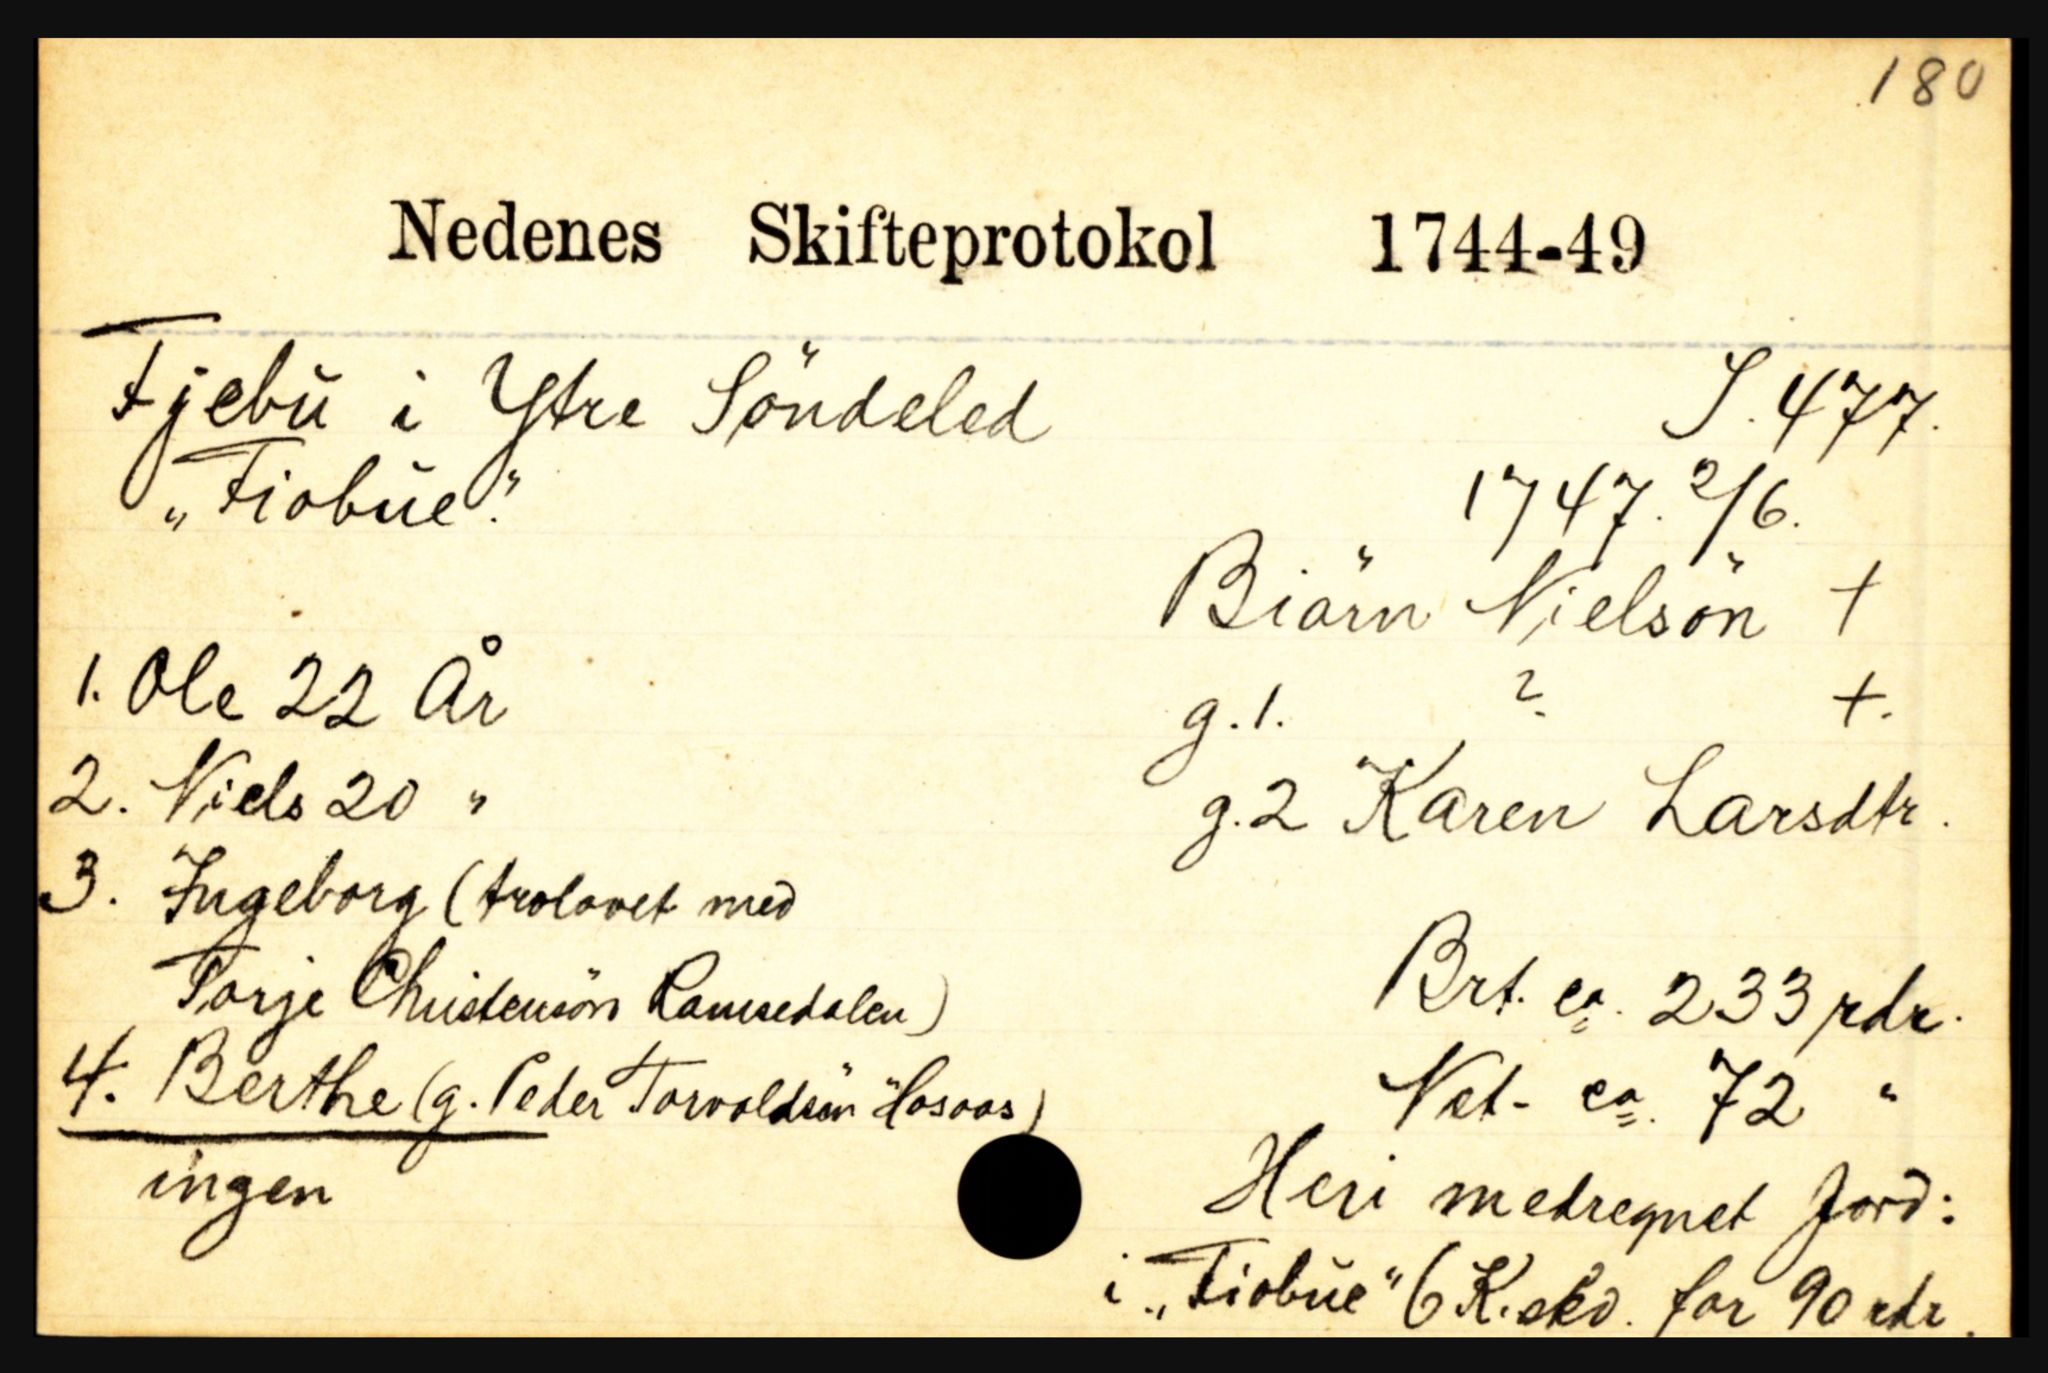 180
Nedenes Skifteprotokol 1744-49
Fjebu i Ytre Söndeled S. 477.
„Fiobue". 1747. 2/6.
Biörn Nielsön +
1. Ole 22 År g.1. ? +.
2. Niels 20 " g.2 Karen Larsdtr.
3. Ingeborg (trolovet med
Torje Christensön Ramsedalen) Brt. ca. 233 rdr.
4. Berthe (g. Peder Torvoldsön Hosaas) Net- ca. 72 "
ingen Heri medregnet Jord:
i „Fiobue" 6 K.skd. for 90 rdr.